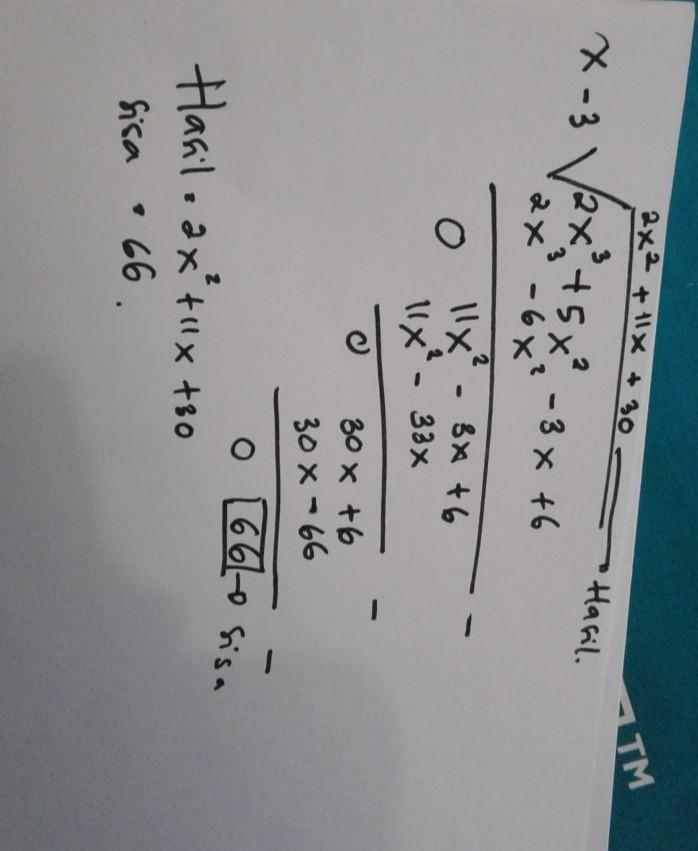 2x² + 11x + 30 → Hasil.
x - 3 √ 2x³ + 5x² - 3x + 6
2x³ - 6x²
0 11x² - 3x + 6
11x² - 33x
0 30x + 6
30x - 66
0 66 → Sisa
Hasil = 2x² + 11x + 30
Sisa = 66.
TM